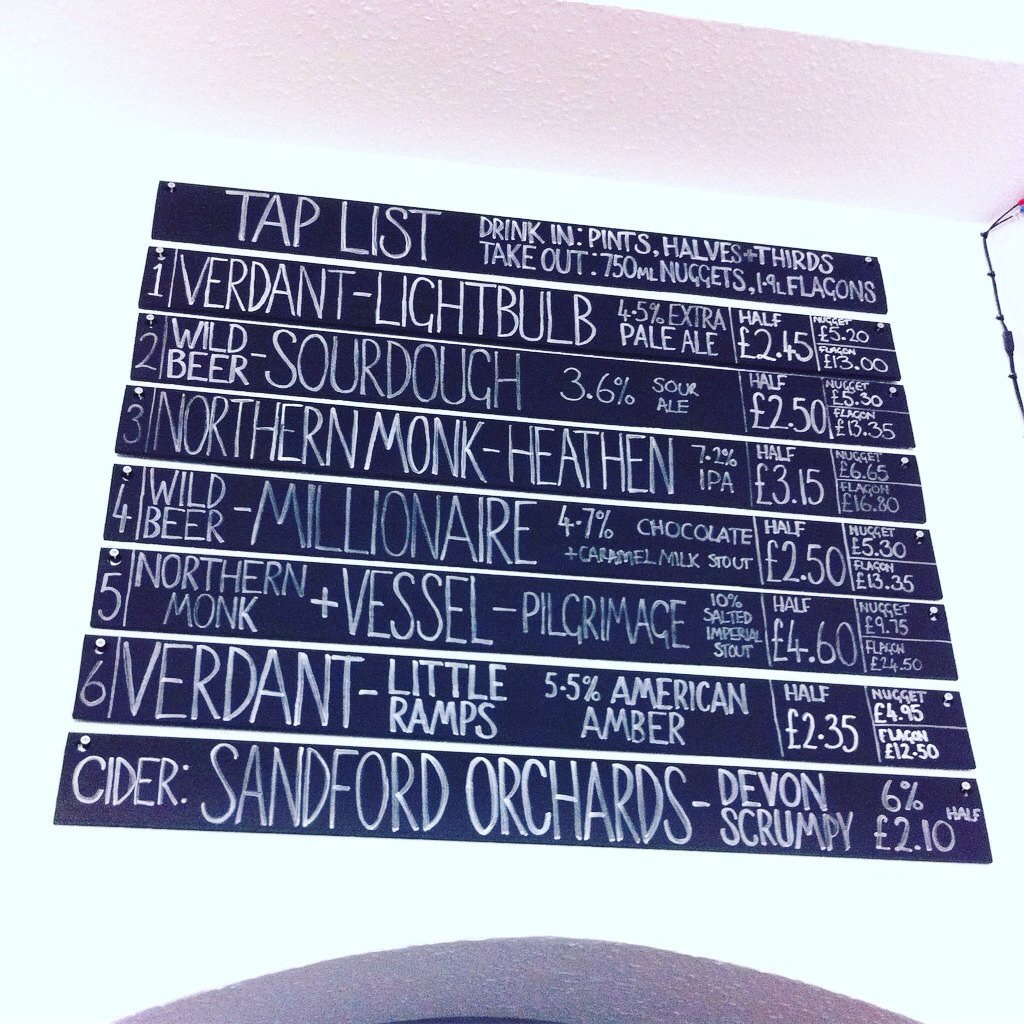 TAP LIST
DRINK IN: PINTS, HALVES + THIRDS
TAKE OUT: 750ML NUGGETS, 1.9L FLAGONS
1 VERDANT - LIGHTBULB 4.5% EXTRA PALE ALE HALF £2.45 NUGGET £5.20 FLAGON £13.00
2 WILD BEER - SOURDOUGH 3.6% SOUR ALE HALF £2.50 NUGGET £5.30 FLAGON £13.35
3 NORTHERN MONK - HEATHEN 7.2% IPA HALF £3.15 NUGGET £6.65 FLAGON £16.80
4 WILD BEER - MILLIONAIRE 4.7% CHOCOLATE + CARAMEL MILK STOUT HALF £2.50 NUGGET £5.30 FLAGON £13.35
5 NORTHERN MONK + VESSEL - PILGRIMAGE 10% SALTED IMPERIAL STOUT HALF £4.60 NUGGET £9.75 FLAGON £24.50
6 VERDANT - LITTLE RAMPS 5.5% AMERICAN AMBER HALF £2.35 NUGGET £4.95 FLAGON £12.50
CIDER: SANDFORD ORCHARDS - DEVON SCRUMPY 6% £2.10 HALF